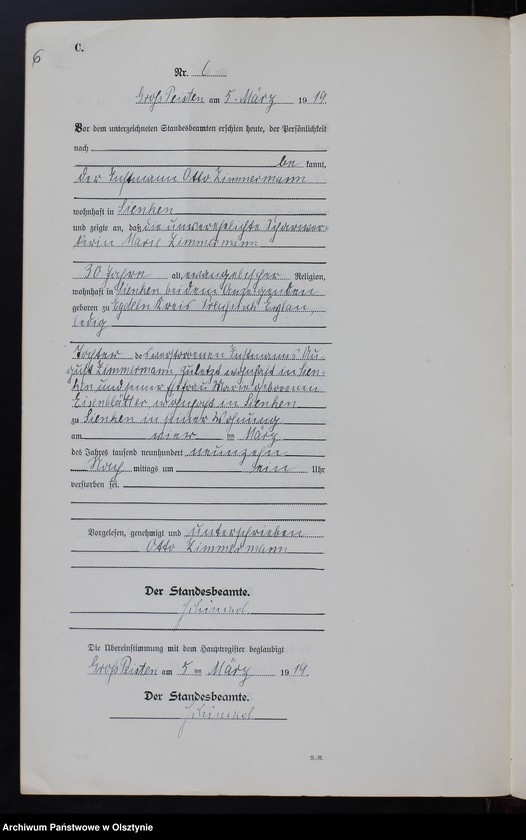 6
C.
Nr. 6
Groß Peisten am 5. März 1919.
Vor dem unterzeichneten Standesbeamten erschien heute, der Persönlichkeit
nach
be kannt,
der Instmann Otto Zimmermann
wohnhaft in Sienken
und zeigte an, daß die unverehelichte Scharwer-
kerin Marie Zimmermann
30 Jahre alt, evangelischer Religion,
wohnhaft in Sienken bei dem Anzeigenden
geboren zu Kreis Preußisch Eylau,
ledig
Tochter des verstorbenen Instmanns Au-
gust Zimmermann, zuletzt wohnhaft in Sien-
ken und seiner Ehefrau Marie geborenen
Eisenblätter, wohnhaft in Sienken
zu Sienken in seiner Wohnung
am vier ten März
des Jahres tausend neunhundert neunzehn
Nach mittags um ein Uhr
verstorben sei.
Vorgelesen, genehmigt und unterschrieben
Otto Zimmermann
Der Standesbeamte.
Die Übereinstimmung mit dem Hauptregister beglaubigt
Groß Peisten am 5 ten März 1919.
Der Standesbeamte.
Archiwum Państwowe w Olsztynie